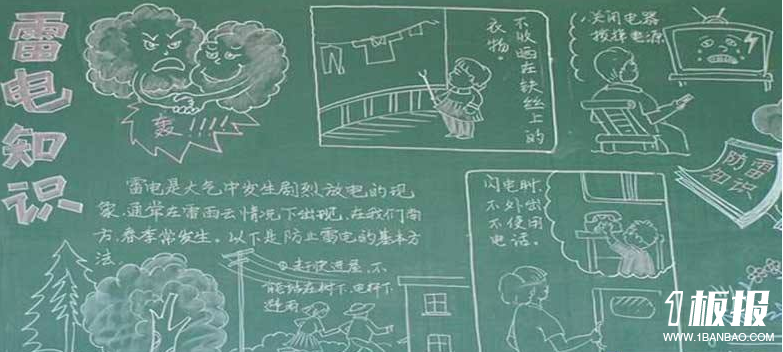 雷电知识
轰!!!!
不收晒在铁丝上的
衣物。
关闭电器
拔掉电源
防雷
知识
雷电是大气中发生剧烈放电的现
象,通常在雷雨云情况下出现,在我们南
方,春季常发生。以下是防止雷电的基本方
法.
赶快进屋,不
能站在树下、电杆下
避雨
闪电时,
不外出
不使用
电话。
1板报
WWW.1BANBAO.COM